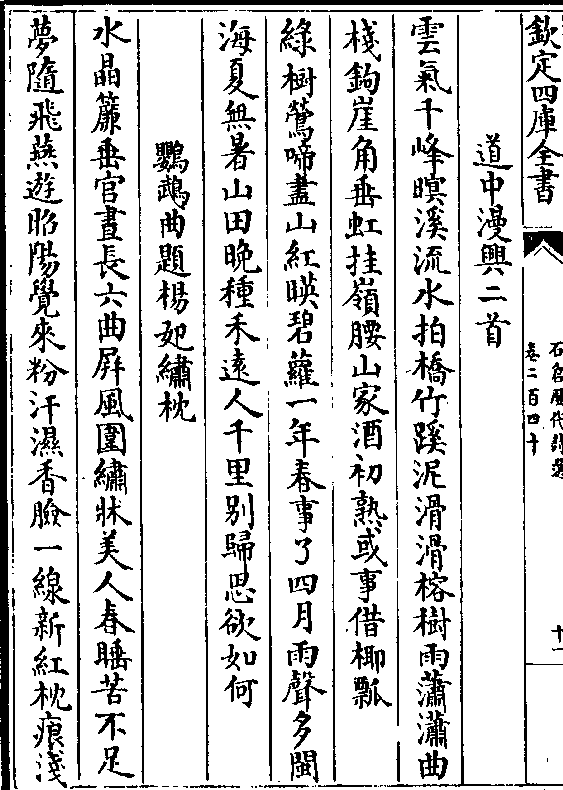 欽定四庫全書
石倉歷代詩選
卷二百四十
十一
道中漫興二首
雲氣千峰暝溪流水拍橋竹蹊泥滑滑榕樹雨蕭瀟曲
棧鉤崖角垂虹挂嶺腰山家酒初熟或事借椰瓢
綠樹鶯啼盡山紅暎碧蘿一年春事了四月雨聲多閩
海夏無暑山田晚種禾遠人千里别歸思欲如何
鸚鵡曲題楊妃繡枕
水晶簾垂官晝長六曲屏風圍繡牀美人春睡苦不足
夢隨飛燕遊昭陽覺來粉汗濕香臉一線新紅枕痕淺